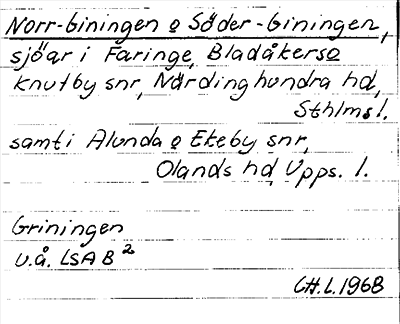 Norr-Giningen o Söder-Giningen,
sjöar i Faringe, Bladåkers o
Knutby snr, Närdinghundra hd,
Sthlms l.
samt i Alunda o Ekeby snr,
Olands hd, Upps. l.
Griningen
U.å. LSA B 2
C.H.L. 1968